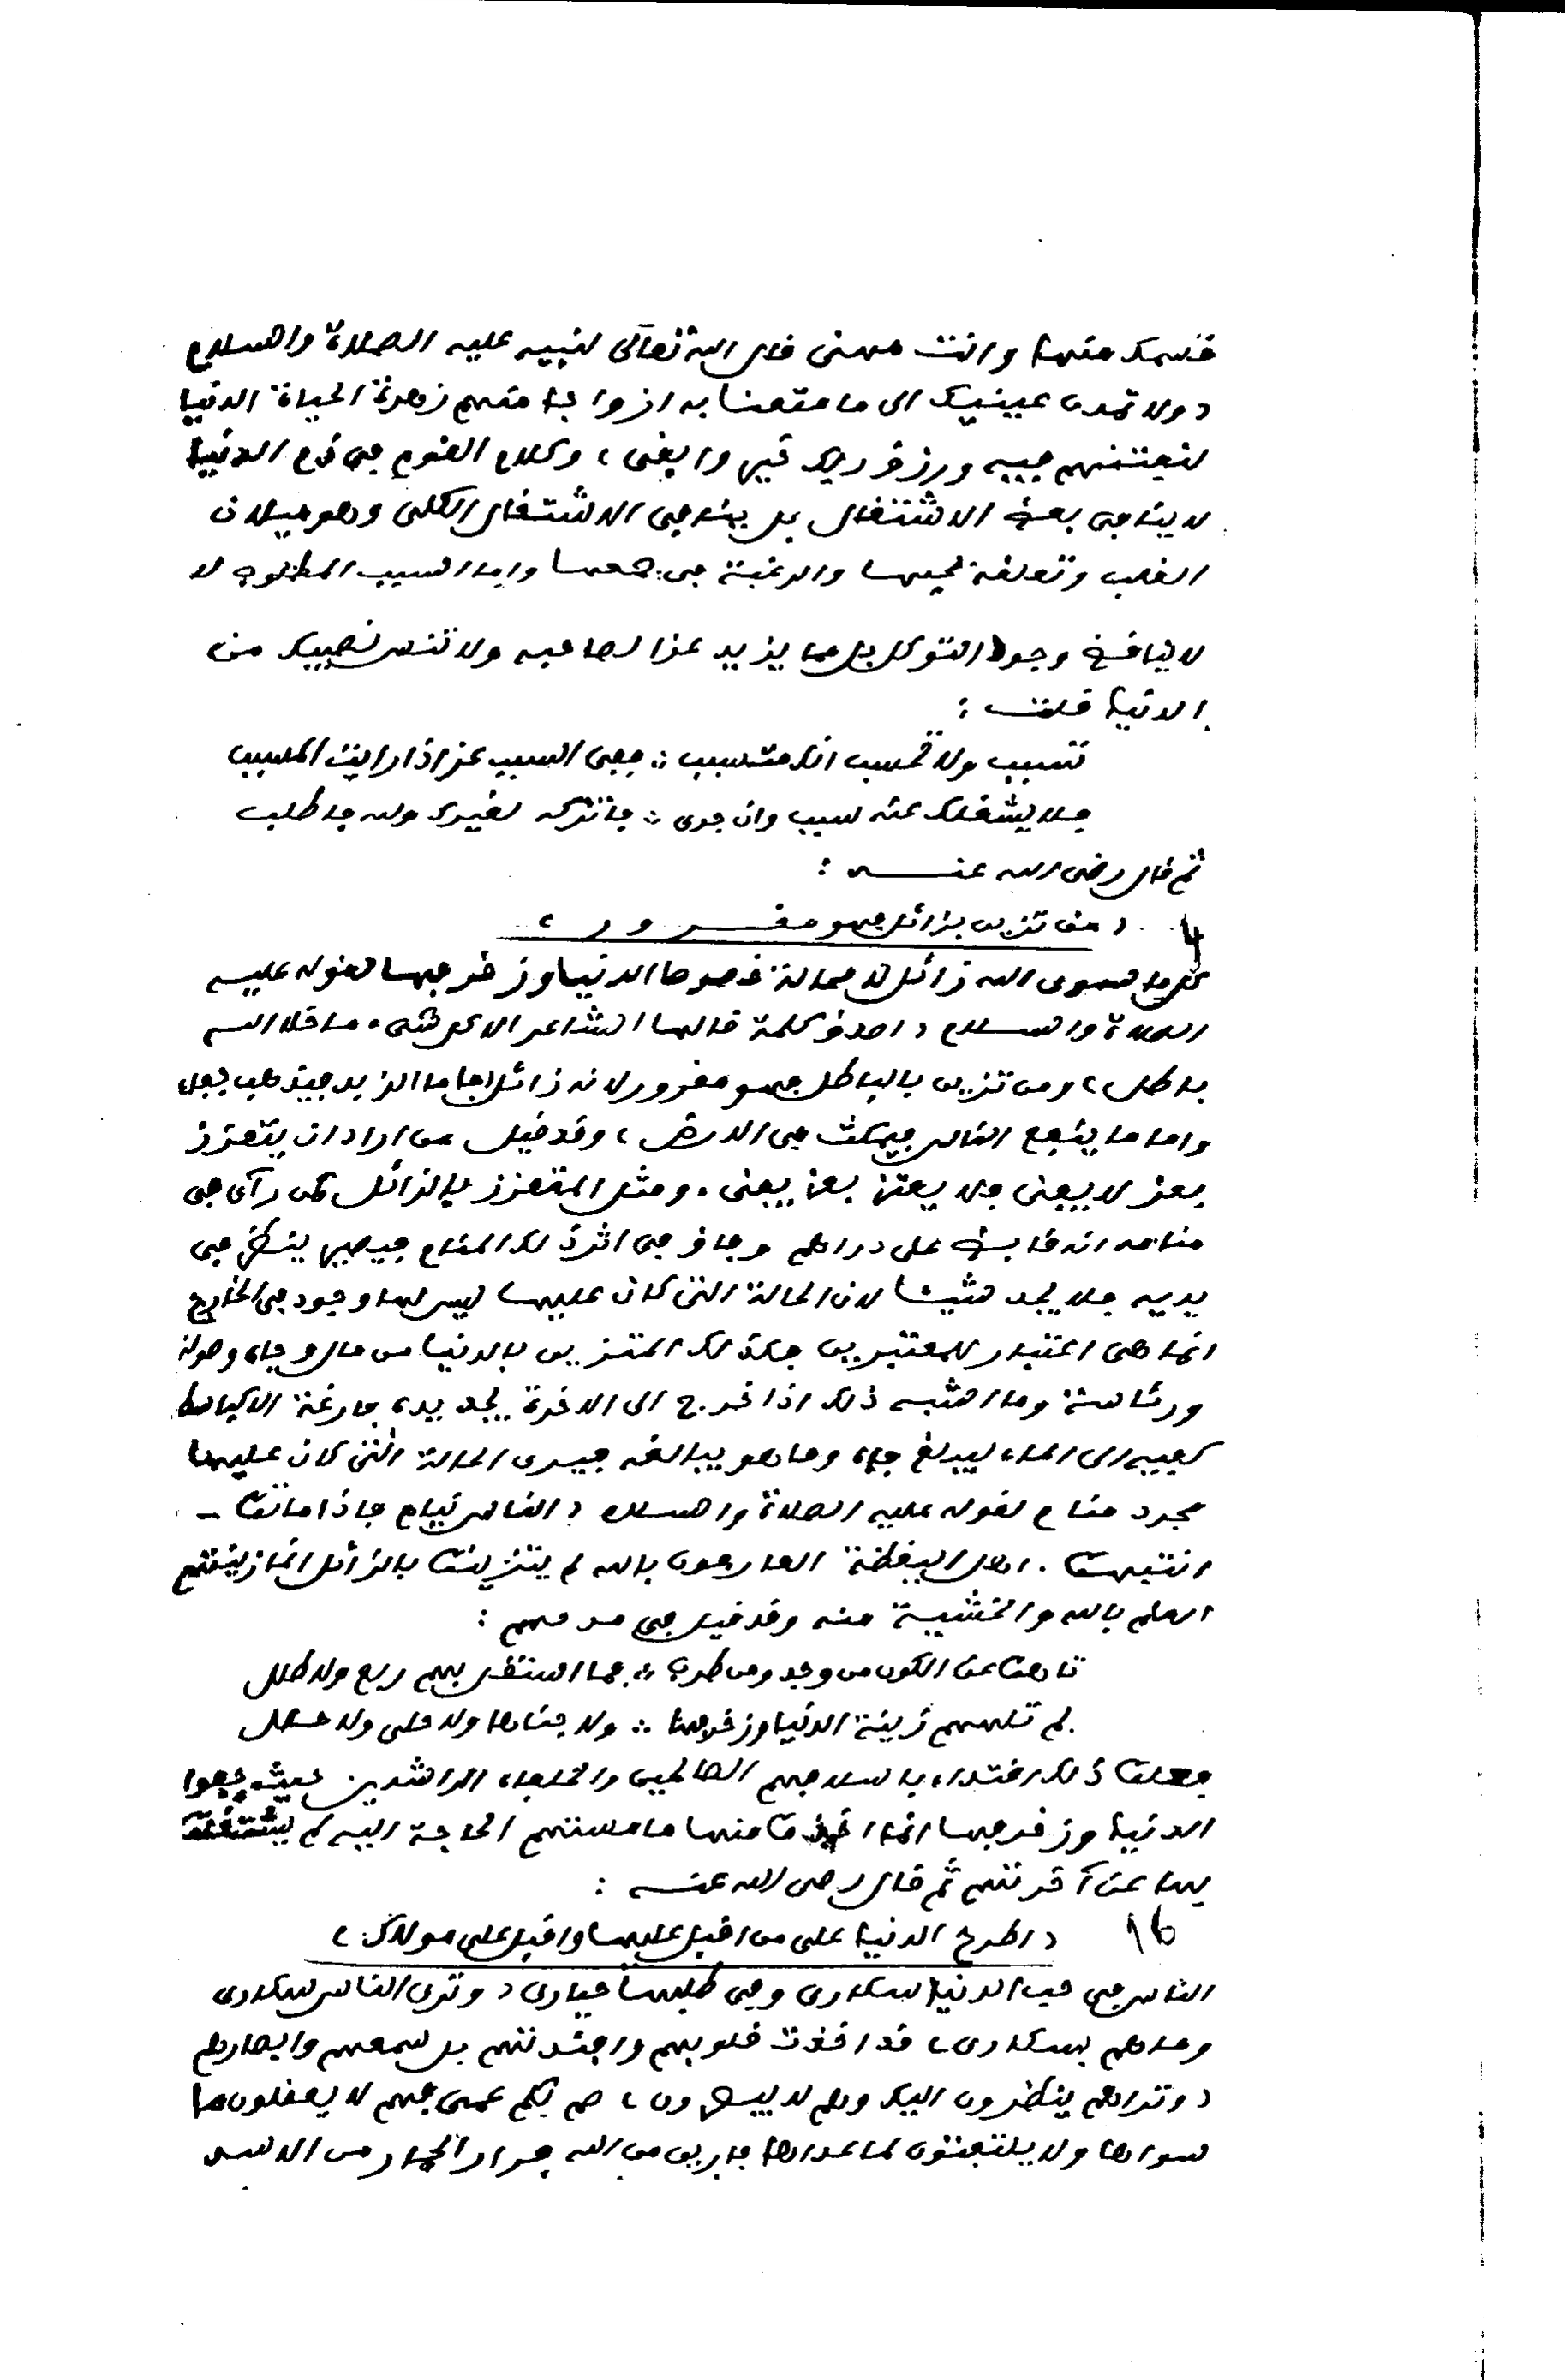 قسمك منها وانت مهنى قال الله تعالى لنبيه عليه الصلاة والسلام
(ولا تمدن عينيك الى ما متعنا به ازواجا منهم زهرة الحياة الدنيا
لنفتنهم فيه ورزق ربك خير وابقى) وكلام القوم في ذم الدنيا
لا ينافي بعض الاشتغال بل ينافي الاشتغال الكلي وهو ميلان
القلب وتعلقه بحبها والرغبة في جمعها واما السبب المطلوب لا
لا يناقض وجود التوكل بل مما يزيد عزا لصاحبه ولا تنس نصيبك من
الدنيا قلت :
تسبب ولا تحسب انك متسبب ∴ ففي السبب عز اذا رايت المسبب
فلا يشغلك عنه سبب وان جرى ∴ فاتركه لغيرك وله فاطلب
ثم قال رضي الله عنه :
(من تزين بزائل فهو مغرور)
كل ما سوى الله زائل لا محالة خصوصا الدنيا وزخرفها لقوله عليه
الصلاة والسلام (اصدق كلمة قالها الشاعر الا كل شيء ما خلا الله
باطل) ومن تزين بالباطل فهو مغرور لانه زائل (فاما الزبد فيذهب جفاء
واما ما ينفع الناس فيمكث في الارض) وقد قيل من اراد ان يتعزز
بعز لا يفنى فلا يعتز بعز يفنى . ومثل المتعزز بالزائل كمن رآى في
منامه انه قابض على دراهم وفاق في اثر ذلك المنام فيصبح ينظر في
يديه فلا يجد شيئا لان الحالة التي كان عليها ليس لها وجود في الخارج
انما هي اعتبار للمعتبرين فكذلك المتزين بالدنيا من مال وجاه وصولة
ورئاسة وما اشبه ذلك اذا خرج الى الاخرة يجد يده فارغة الا كباسط
كفيه الى الماء ليبلغ فاه وما هو ببالغه فيرى الحالة التي كان عليها
مجرد منام لقوله عليه الصلاة والسلام (الناس نيام فاذا ماتوا –
انتبهوا . اهل اليقظة العارفون بالله لم يتزينوا بالزائل انما زينتهم
العلم بالله والخشية منه وقد قيل في مدحهم :
تاهوا عن الكون من وجد ومن طرب ∴ فما استقر بهم ربع ولا طلل
لم تلههم زينة الدنيا وزخرفها ∴ ولا جناها ولا حلي ولا حلل
فعلوا ذلك اقتداء باسلافهم الصالحين والخلفاء الراشدين حيث
الدنيا وزخرفها انما اخذوا منها ما مستهم الحاجة اليه لم يشتغلوا
بها عن آخرتهم ثم قال رضي الله عنه :
16 (اطرح الدنيا على من اقبل عليها واقبل على مولاك)
الناس في حب الدنيا سكارى وفي طلبها حيارى (وترى الناس سكارى
وما هم بسكارى) قد اخذت قلوبهم وافئدتهم بل سمعهم وابصارهم
(وتراهم ينظرون اليك وهم لا يبصرون) صم بكم عمي فهم لا يعقلون ما
سواها ولا يلتفتون لما عداها فارين من الله فرار الحمار من الاسد